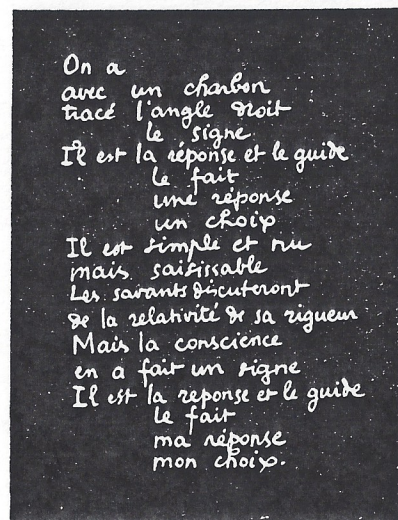 On a
avec un charbon
tracé l'angle droit
le signe
Il est la réponse et le guide
le fait
une réponse
un choix
Il est simple et nu
mais saisissable
Les savants discuteront
de la relativité de sa rigueur
Mais la conscience
en a fait un signe
Il est la reponse et le guide
le fait
ma réponse
mon choix.